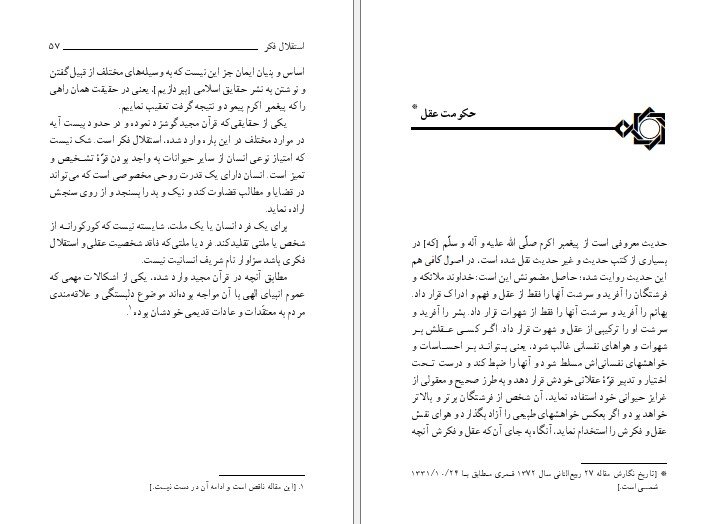 استقلال فکر ۵۷
اساس و بنیان ایمان جز این نیست که به وسیله‌های مختلف از قبیل گفتن
و نوشتن به نشر حقایق اسلامی [بپردازیم]، یعنی در حقیقت همان راهی
را که پیغمبر اکرم پیمود و نتیجه گرفت تعقیب نماییم.
یکی از حقایقی که قرآن مجید گوشزد نموده و در حدود بیست آیه
در موارد مختلف در این باره وارد شده، استقلال فکر است. شک نیست
که امتیاز نوعی انسان از سایر حیوانات به واجد بودن قوّهٔ تشخیص و
تمیز است. انسان دارای یک قدرت روحی مخصوصی است که می‌تواند
در قضایا و مطالب قضاوت کند و نیک و بد را بسنجد و از روی سنجش
اراده نماید.
برای یک فرد انسان یا یک ملت، شایسته نیست که کورکورانه از
شخص یا ملتی تقلید کند. فرد یا ملتی که فاقد شخصیت عقلی و استقلال
فکری باشد سزاوار نام شریف انسانیت نیست.
مطابق آنچه در قرآن مجید وارد شده، یکی از اشکالات مهمی که
عموم انبیای الهی با آن مواجه بوده‌اند موضوع دلبستگی و علاقه‌مندی
مردم به معتقدات و عادات قدیمی خودشان بوده۱.
۱. [این مقاله ناقص است و ادامه آن در دست نیست.]
حکومت عقل *
حدیث معروفی است از پیغمبر اکرم صلّی الله علیه و آله و سلّم [که] در
بسیاری از کتب حدیث و غیر حدیث نقل شده است، در اصول کافی هم
این حدیث روایت شده؛ حاصل مضمونش این است: خداوند ملائکه و
فرشتگان را آفرید و سرشت آنها را فقط از عقل و فهم و ادراک قرار داد.
بهائم را آفرید و سرشت آنها را فقط از شهوات قرار داد. بشر را آفرید و
سرشت او را ترکیبی از عقل و شهوت قرار داد. اگر کسی عقلش بر
شهوات و هواهای نفسانی غالب شود، یعنی بتواند بر احساسات و
خواهشهای نفسانی‌اش مسلط شود و آنها را ضبط کند و درست تحت
اختیار و تدبیر قوّهٔ عقلانی خودش قرار دهد و به طرز صحیح و معقولی از
غرایز حیوانی خود استفاده نماید، آن شخص از فرشتگان برتر و بالاتر
خواهد بود و اگر بعکس خواهشهای طبیعی را آزاد بگذارد و هوای نفش
عقل و فکرش را استخدام نماید، آنگاه به جای آن‌که عقل و فکرش آنچه
* [تاریخ نگارش مقاله ۲۷ ربیع‌الثانی سال ۱۳۷۲ قمری مطابق با ۱۳۳۱/۱۰/۲۴
شمسی است.]